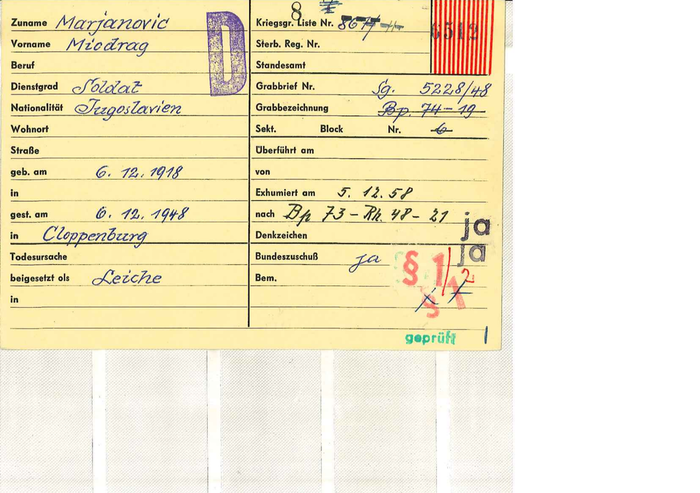 8
Zuname Marjanovic
Vorname Miodrag
Beruf
Dienstgrad Soldat
Nationalität Jugoslavien
Wohnort
Straße
geb. am 6. 12. 1918
in
gest. am 6. 12. 1948
in Cloppenburg
Todesursache
beigesetzt als Leiche
in
D
Kriegsgr. Liste Nr.
Sterb. Reg. Nr.
Standesamt
Grabbrief Nr. Sg. 5228/48
Grabbezeichnung Bp. 74-19
Sekt. Block Nr. 6
Überführt am
von
Exhumiert am 5. 12. 58
nach Bp 73 - Rh. 48 - 21
ja
Denkzeichen
ja
Bundeszuschuß ja
§ 1/2
Bem.
§ 1
geprüft